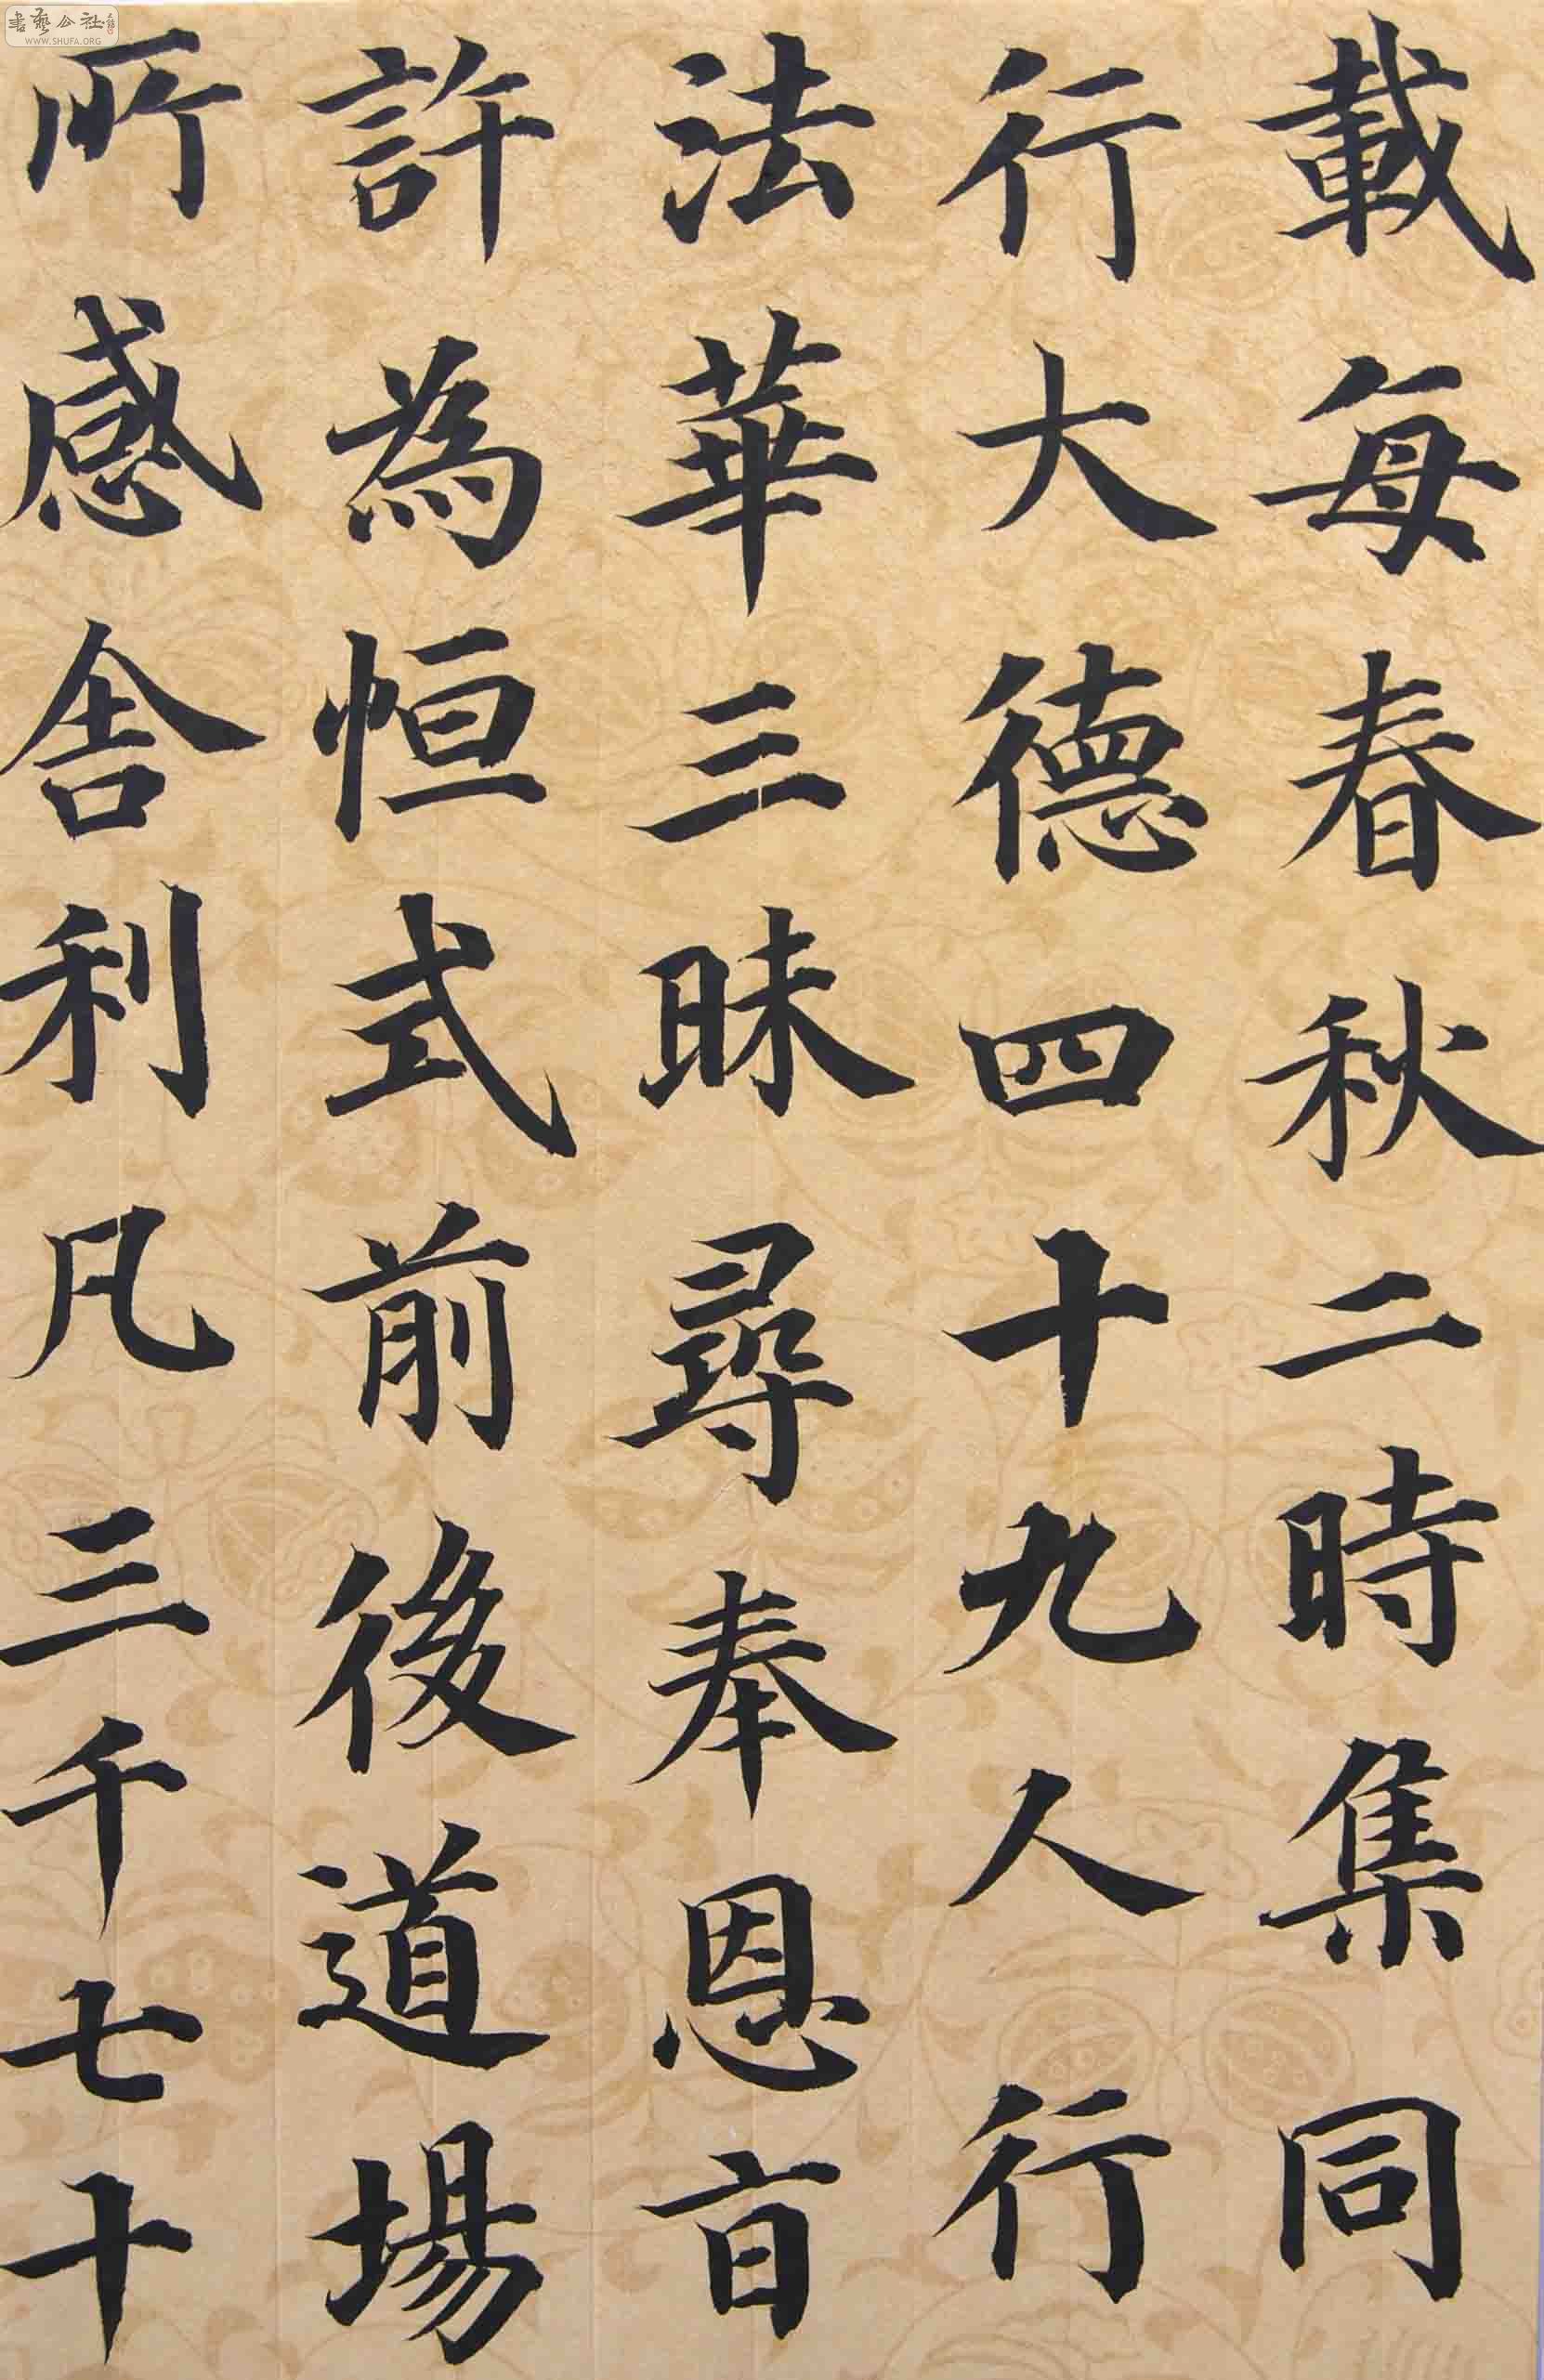 載每春秋二時集同
行大德四十九人行
法華三昧尋奉恩旨
許為恒式前後道場
所感舍利凡三千七十
書藝公社
WWW.SHUFA.ORG